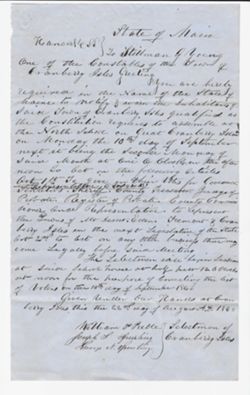 State of Maine
Hancock SS
To Stillman G Young
One of the Constables of the Town of
Cranberry Isles Greeting
You are hereby
required in the Name of the State of
Maine to Notify & warn the Inhabitants of
said Town of Cranberry Isles qualified as
the Constitution requires to assemble at
the North School on Great Cranberry Island
on Monday the 10th day of September
next it being the Second Monday of
said Month at One O Clock in the after
noon to act on the following articles
to give in their Votes for Governor
Judge of
Probate Register of Probate County Com
and Representative to Represent
the Towns of Mt Desert Eden Tremont &
Cranberry Isles in the next Legislature of the State
to act on any other that may
come Legally before said Meeting
The Selectmen will be in Session
at said School house at half past 12 O Clock
at noon for the purpose of correcting the list
of Votes on the 10th day of September 1860
Given Under Our Hands at Cran
berry Isles this the 22 day of August AD 1860
William P Preble
Selectmen of
Joseph S Spurling
Cranberry Isles
Spurling